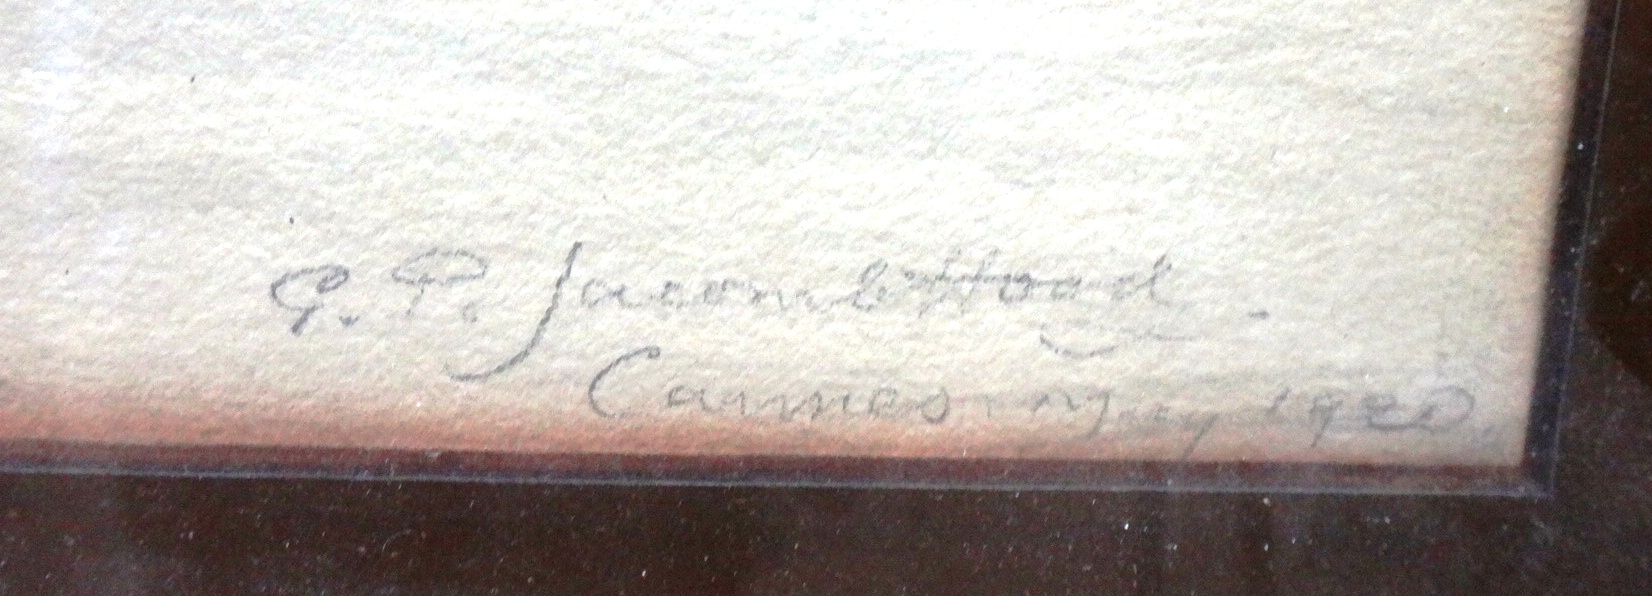 G. P. Jacomb Hood -
Cannes - May 1920